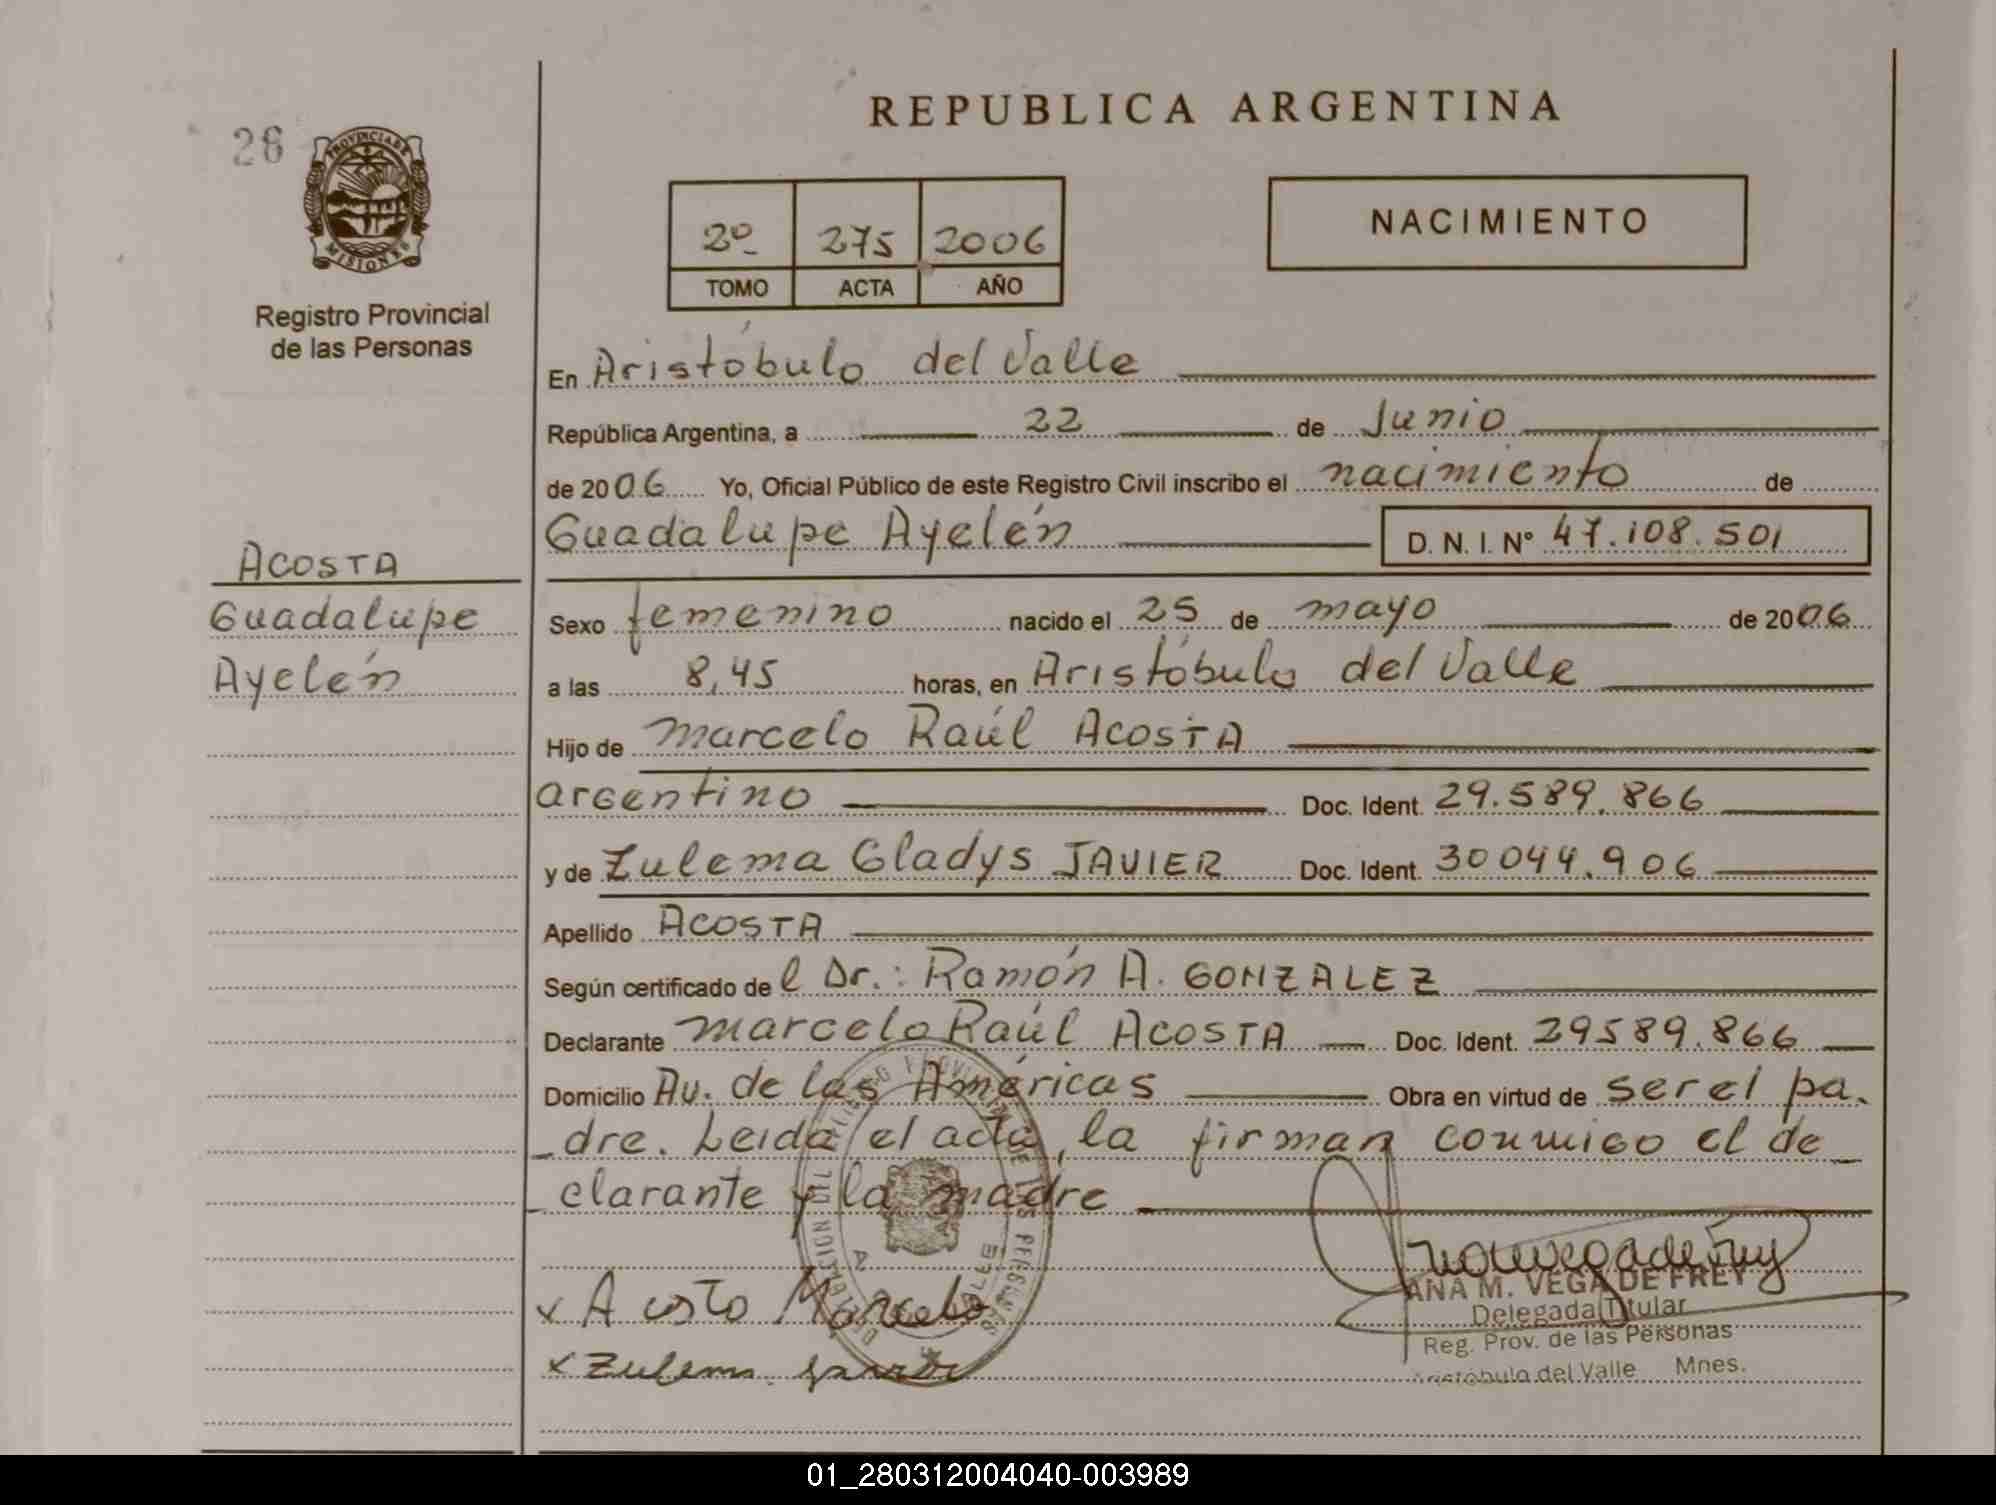 REPUBLICA ARGENTINA
26
PROVINCIA DE
MISIONES
Registro Provincial
de las Personas
2º 275 2006
TOMO ACTA AÑO
NACIMIENTO
En Aristóbulo del Valle
República Argentina, a 22 de Junio
de 2006 Yo, Oficial Público de este Registro Civil inscribo el nacimiento de
Guadalupe Ayelén D. N. I. Nº 47.108.501
ACOSTA
Guadalupe
Ayelén
Sexo femenino nacido el 25 de mayo de 2006
a las 8,45 horas, en Aristóbulo del Valle
Hijo de Marcelo Raúl ACOSTA
argentino Doc. Ident. 29.589.866
y de Zulema Gladys JAVIER Doc. Ident. 30044.906
Apellido ACOSTA
Según certificado de l Dr.: Ramón A. GONZALEZ
Declarante Marcelo Raúl ACOSTA Doc. Ident. 29589.866
Domicilio Av. de las Américas Obra en virtud de ser el pa-
dre. Leida el acta, la firman conmigo el de
clarante y la madre
x Acosta Marcelo
x Zulema
ANA M. VEGA DE FREY
Delegada Titular
Reg. Prov. de las Personas
Aristóbulo del Valle Mnes.
01_280312004040-003989